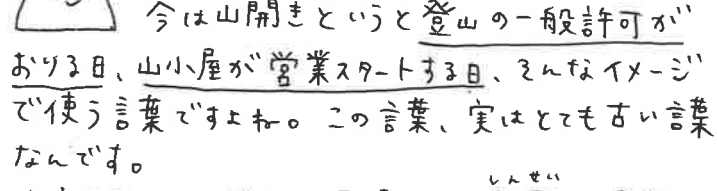 今は山開きというと登山の一般許可が
おりる日、山小屋が営業スタートする日、そんなイメージ
で使う言葉ですよね。この言葉、実はとても古い言葉
なんです。
しんせい